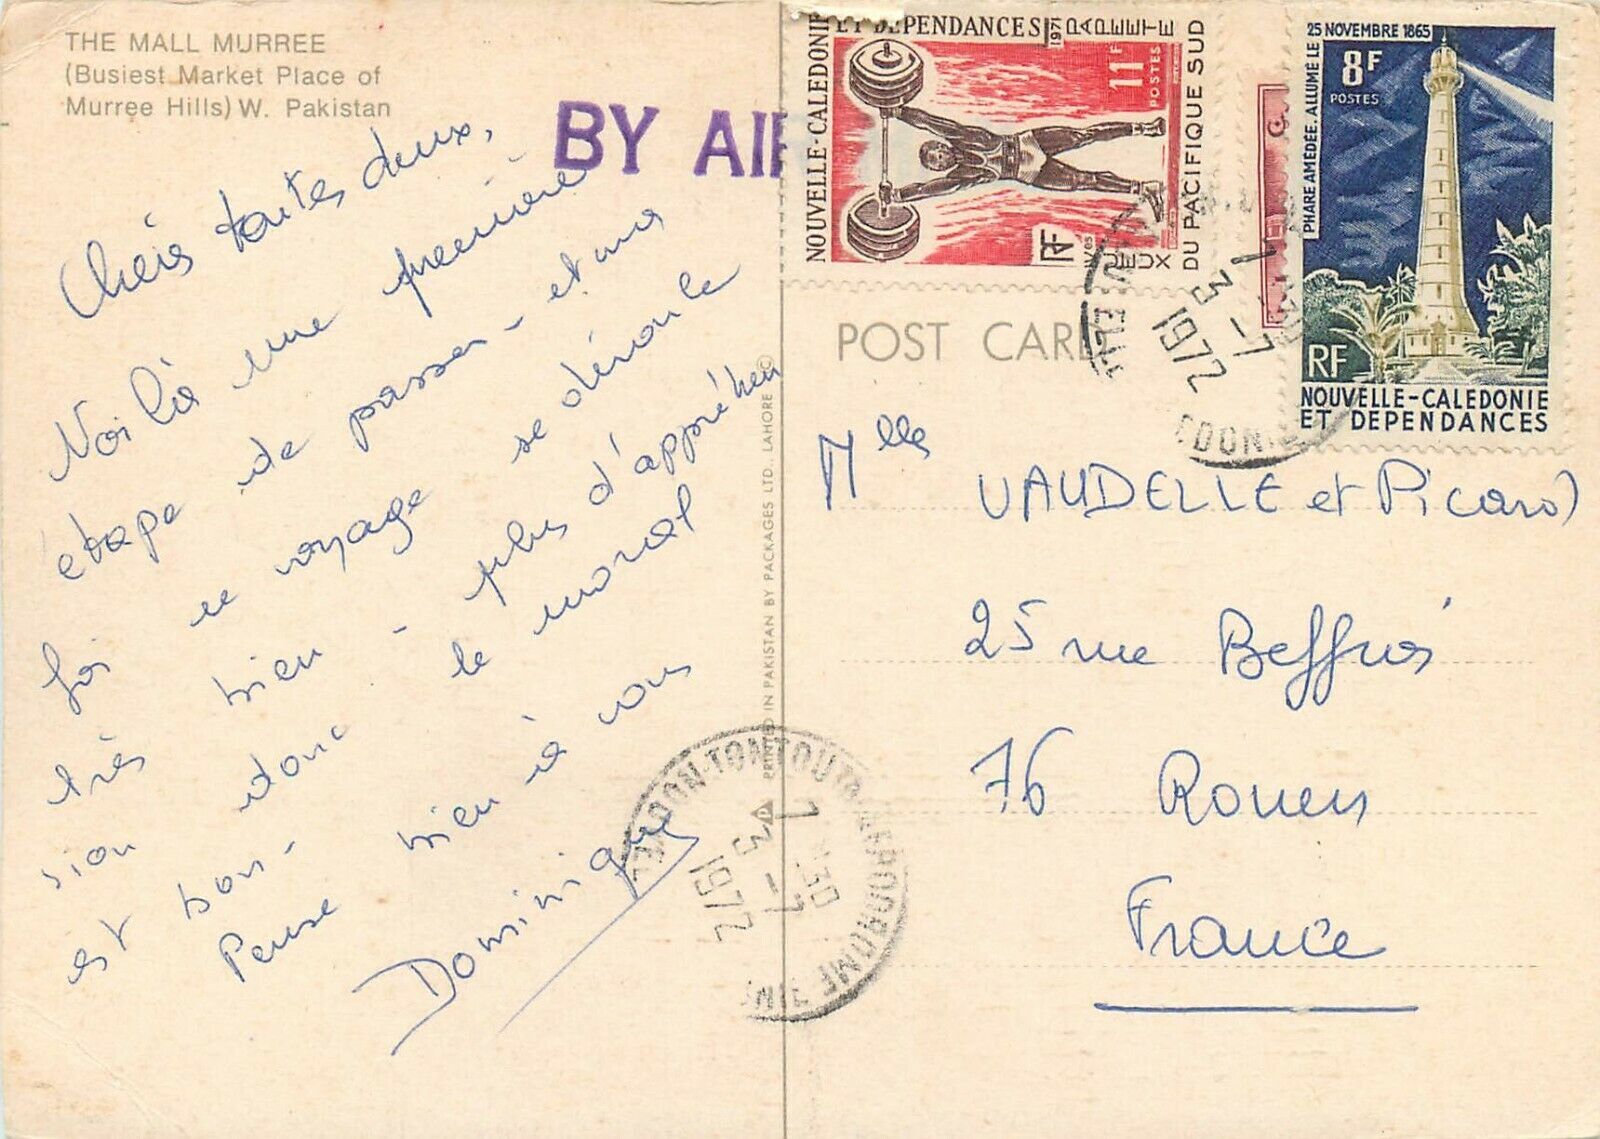 THE MALL MURREE
(Busiest Market Place of
Murree Hills) W. Pakistan
BY AI
Chéis toutes deux,
Voilà une première
étape de passer - et ma
foi ce voyage se déroule
très bien - plus d'appréhen
sion donc le moral
est bon -
Pense bien à vous
Dominique
PRINTED IN PAKISTAN BY PACKAGES LTD. LAHORE ©
POST CARD
NOUVELLE-CALEDONIE
ET DEPENDANCES
1971
PAPEETE
11F
POSTES
RF
JEUX
DU PACIFIQUE SUD
25 NOVEMBRE 1865
PHARE AMÉDÉE. ALLUMÉ LE
8F
POSTES
RF
NOUVELLE-CALEDONIE
ET DEPENDANCES
7
3-7
1972
Mlle
VAUDELLE et Picaro)
25 rue Beffroi
76 Rouen
France
TONTOUTA-AERODROME
7 30
3-7
1972